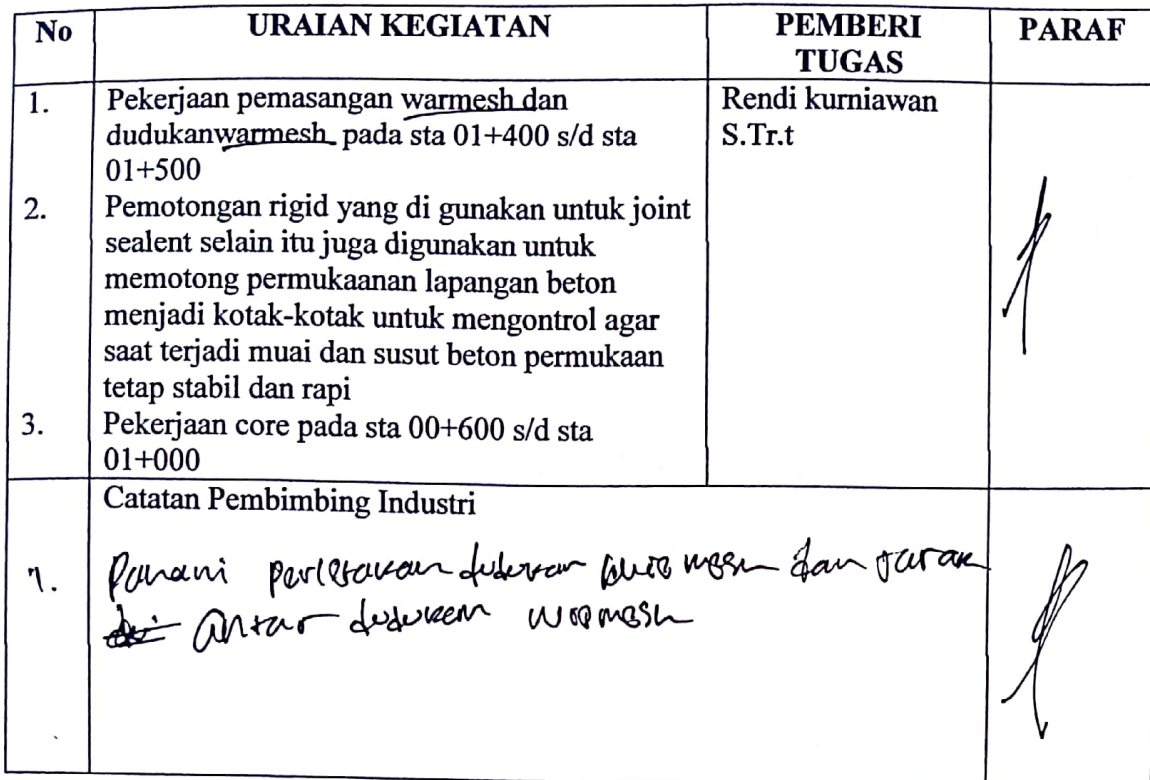 No URAIAN KEGIATAN PEMBERI TUGAS PARAF
1. Pekerjaan pemasangan warmesh dan
dudukanwarmesh pada sta 01+400 s/d sta
01+500
Rendi kurniawan
S.Tr.t
2. Pemotongan rigid yang di gunakan untuk joint
sealent selain itu juga digunakan untuk
memotong permukaanan lapangan beton
menjadi kotak-kotak untuk mengontrol agar
saat terjadi muai dan susut beton permukaan
tetap stabil dan rapi
3. Pekerjaan core pada sta 00+600 s/d sta
01+000
Catatan Pembimbing Industri
1. Pahami perletakan dudukan wire mesh dan jarak
antar dudukan